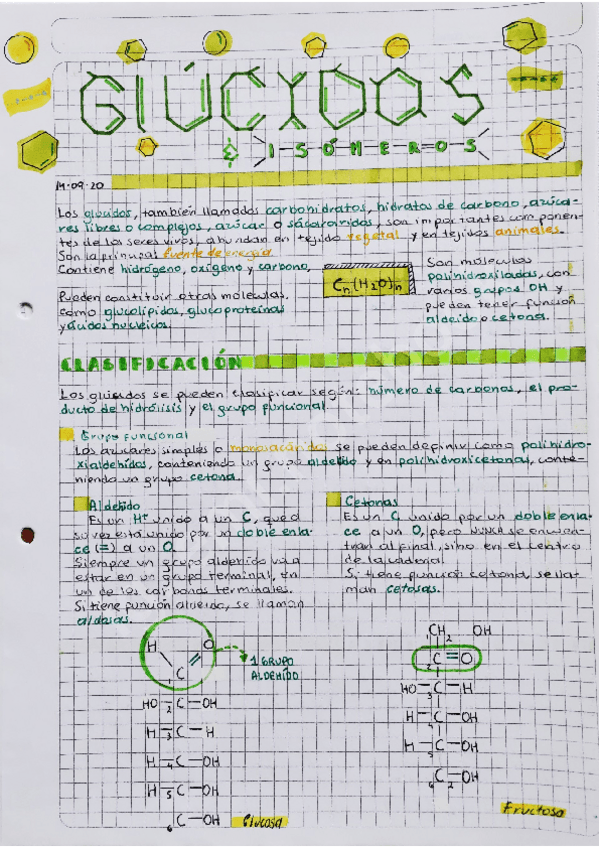 GLÚCIDOS
& ISÓMEROS
M·09·20
Los glúcidos, también llamados carbohidratos, hidratos de carbono, azúca-
res libres o complejos, azúcar o sacáranidos, son importantes componen-
tes de los seres vivos, abundan en tejido vegetal y en tejidos animales.
Son la principal fuente de energía
Contiene hidrógeno, oxígeno y carbono,
Pueden constituir otras moléculas.
como glucolípidos, glucoproteínas
y ácidos nucleicos.
Cn(H2O)n
Son moleculas
polihidroxiladas, con
varios grupos OH y
pueden tener función
aldeído o cetona.
CLASIFICACIÓN
Los glúcidos se pueden clasificar según: número de carbonos, el pro-
ducto de hidrólisis y el grupo funcional.
Grupo funcional
Los azúcares simples o monosacáridos se pueden definir como polihidro-
xialdehídos, conteniendo un grupo aldehído y en polihidroxicetonas, conte-
niendo un grupo cetona.
Aldehído
Es un H+ unido a un C, que a
su vez está unido por un doble enla-
ce (=) a un O.
Siempre un grupo aldehído va a
estar en un grupo terminal, en
un de los carbonos terminales.
Si tiene función aldeído, se llaman
aldosas.
Cetonas
Es un C unido por un doble enla-
ce a un O, pero NUNCA se encuen-
tran al final, sino en el centro
de la cadena.
Si tiene función cetona, se lla-
man cetosas.
H O
1 C
1 GRUPO
ALDEHÍDO
HO 2 C OH
H 3 C H
H 4 C OH
H 5 C OH
6 C OH
Glucosa
CH2 OH
2 C = O
HO 3 C H
H C OH
4
H C OH
5
6 C 2 OH
Fructosa